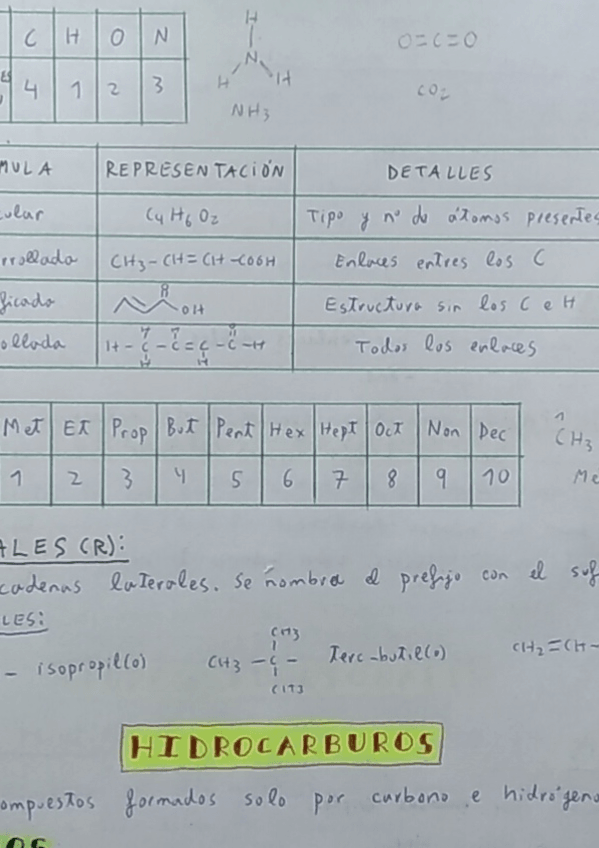 C H O N
4 1 2 3
H
N
H H
NH3
O=C=O
CO2
MULA REPRESENTACIÓN DETALLES
cular C4H6O2 Tipo y nº de átomos presentes
rrollada CH3-CH=CH-COOH Enlaces entres los C
ficada OH Estructura sin los C e H
ollada Todos los enlaces
Met Et Prop But Pent Hex Hept Oct Non Dec
1 2 3 4 5 6 7 8 9 10
1
CH3
Me
ALES (R):
cadenas laterales. Se nombra el prefijo con el suf
LES:
- isopropil(o)
CH3
CH3 - C - Terc-butil(o)
CH3
CH2=CH-
HIDROCARBUROS
ompuestos formados solo por carbono e hidrógeno
OS